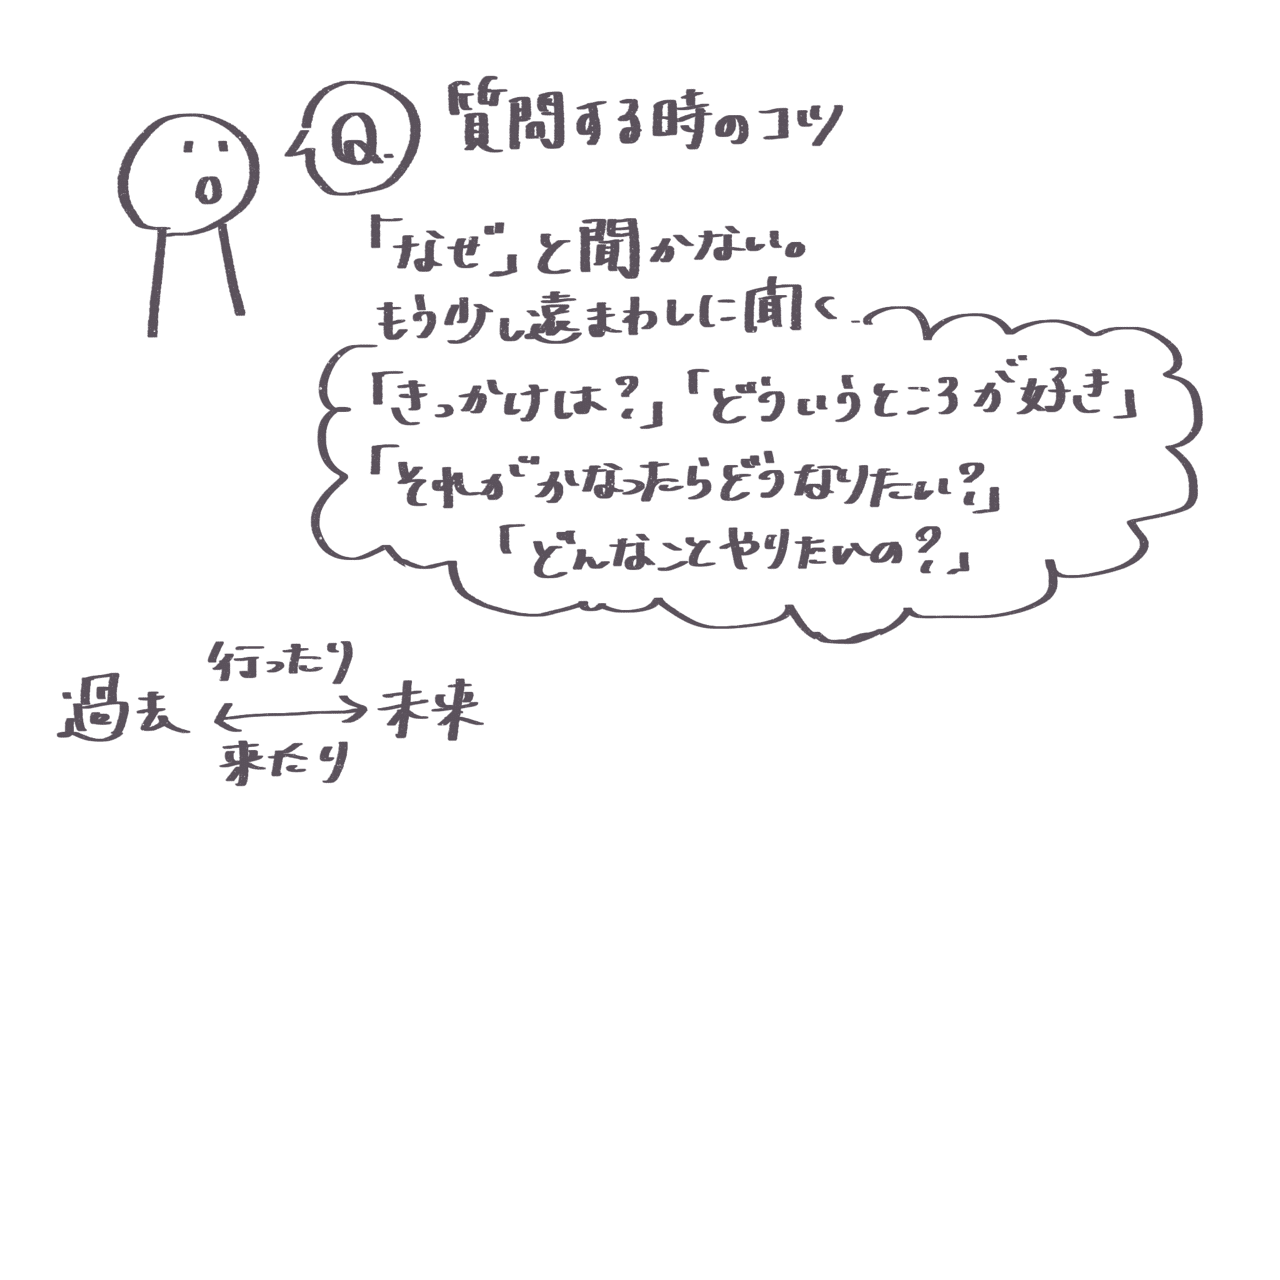 Q. 質問する時のコツ
「なぜ」と聞かない。
もう少し遠まわしに聞く
「きっかけは?」「どういうところが好き」
「それがかなったらどうなりたい?」
「どんなことやりたいの?」
行ったり
過去 ↔ 未来
来たり